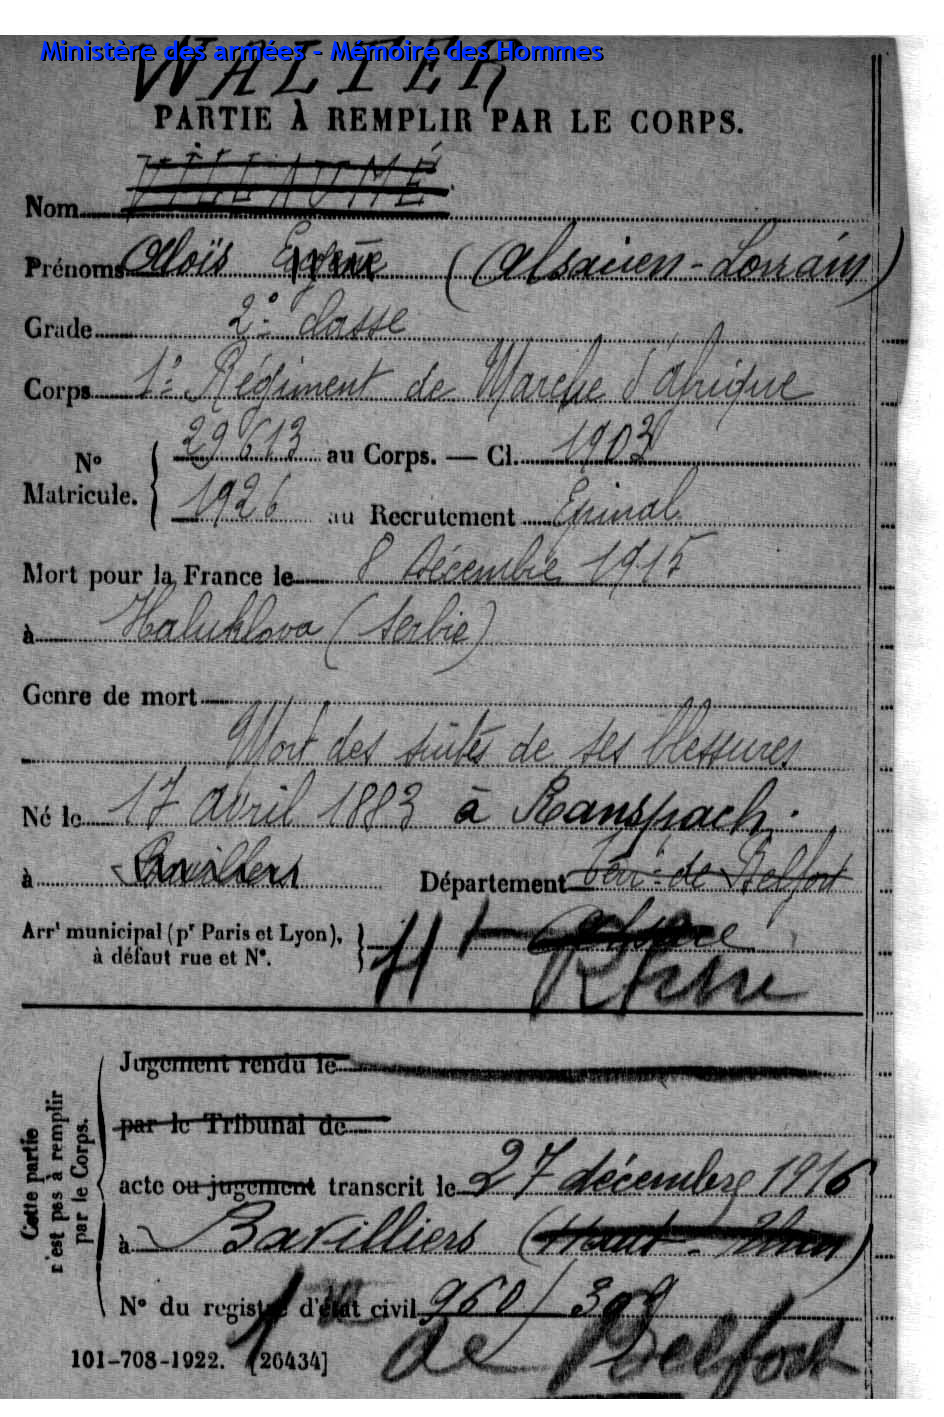 Ministère des armées - Mémoire des Hommes
WALTER
PARTIE À REMPLIR PAR LE CORPS.
Nom VILLAUMÉ
Prénoms Aloïs Eugène (Alsacien-Lorrain)
Grade 2e classe
Corps 1e Régiment de Marche d'afrique
No Matricule. 29613 au Corps. — Cl. 1903
1926 au Recrutement Epinal
Mort pour la France le 8 Décembre 1915
à (Serbie)
Genre de mort
Mort des suites de ses blessures
Né le 17 avril 1883 à Ranspach.
à Bavilliers Département Terr. de Belfort
Arrt municipal (pr Paris et Lyon), à défaut rue et No.
Ht Rhin
Cette partie n'est pas à remplir par le Corps.
Jugement rendu le
par le Tribunal de
acte ou jugement transcrit le 27 décembre 1916
à Bavilliers (Haut-Rhin)
No du registre d'état civil 960/309
Terre de Belfort
101-708-1922. [26434]